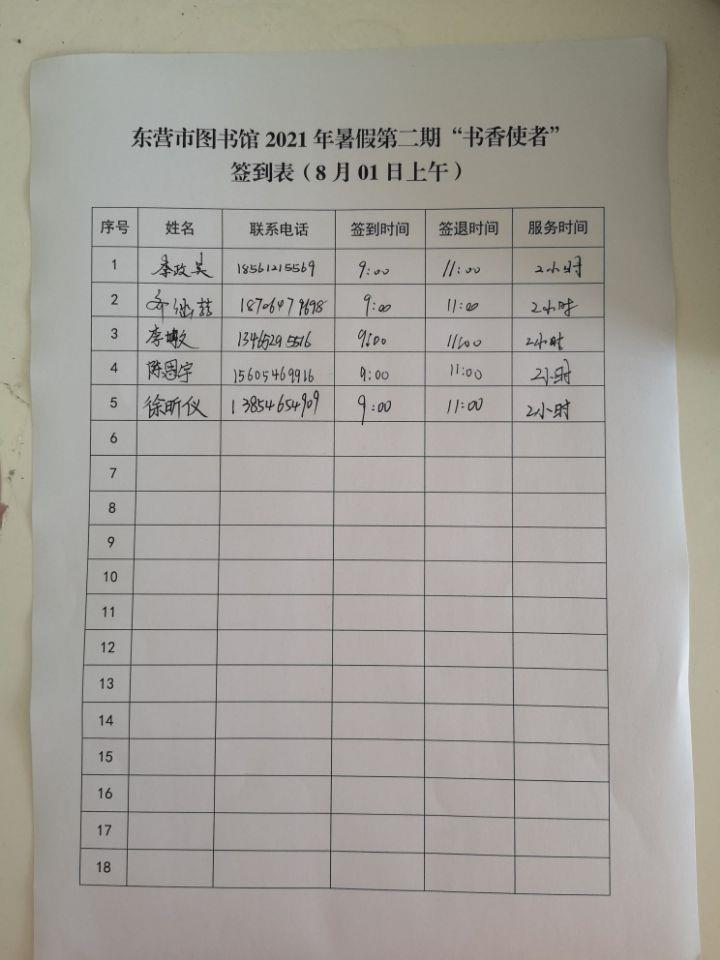 东营市图书馆 2021 年暑假第二期“书香使者”
签到表（8 月 01 日上午）
序号 姓名 联系电话 签到时间 签退时间 服务时间
1 李政昊 18561215569 9:00 11:00 2小时
2 18706479698 9:00 11:00 2小时
3 李敏 13465295516 9:00 11:00 2小时
4 陈恩宇 15605469916 9:00 11:00 2小时
5 徐昕仪 13854654909 9:00 11:00 2小时
6
7
8
9
10
11
12
13
14
15
16
17
18